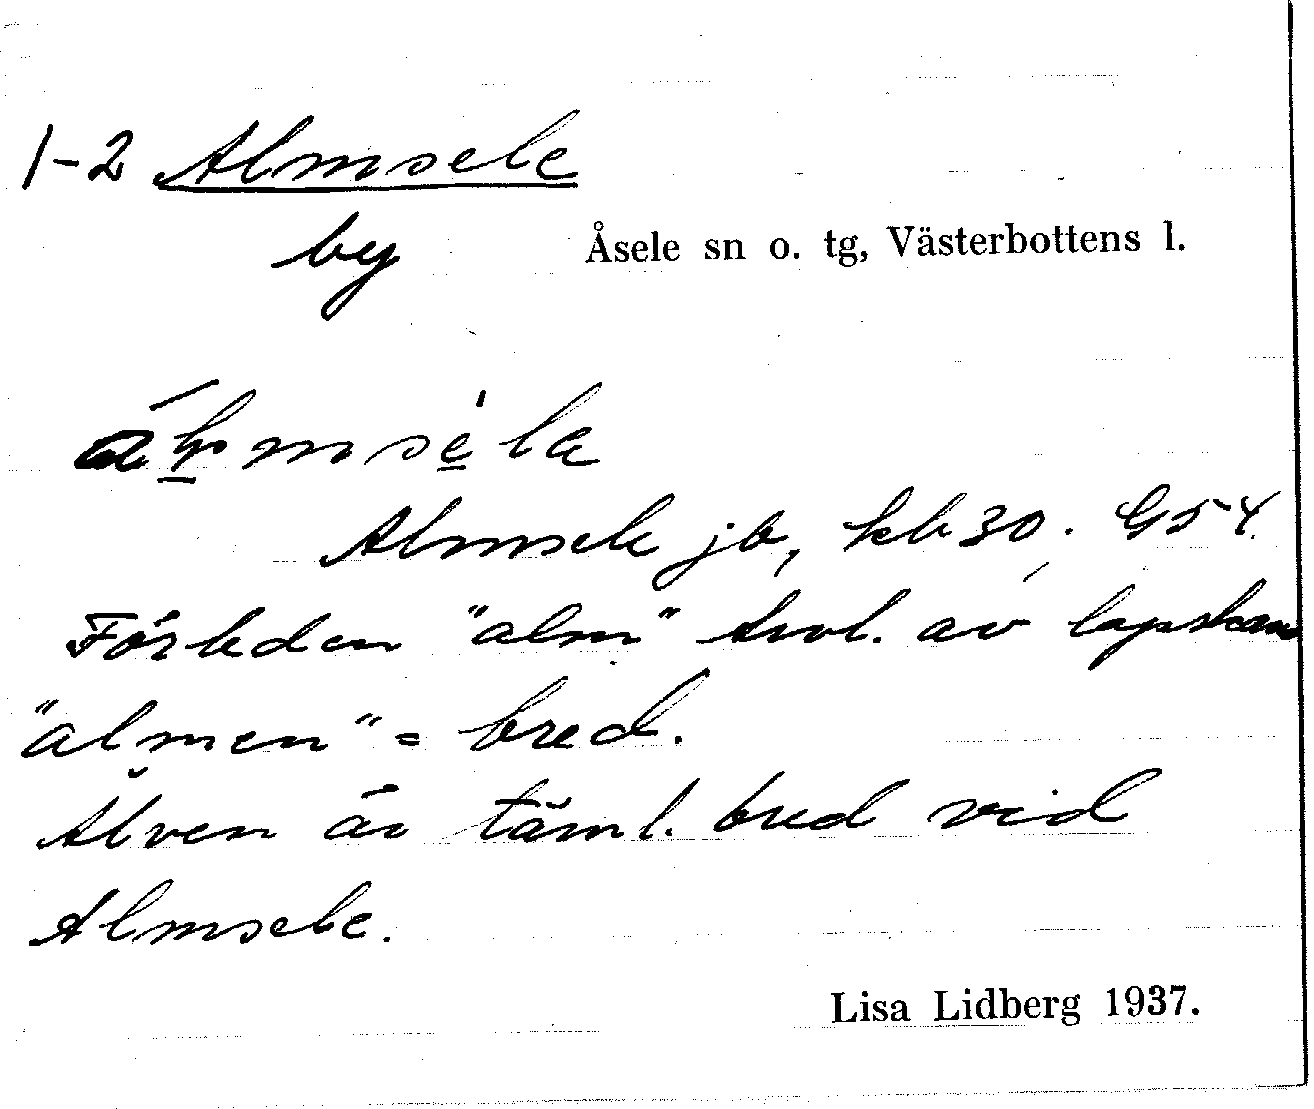 1-2 Almsele
by
Åsele sn o. tg, Västerbottens l.
Almsele jb, kb 30. G54.
Förleden "alm" trol. av lapskan
"almen" = bred.
Älven är täml. bred vid
Almsele.
Lisa Lidberg 1937.